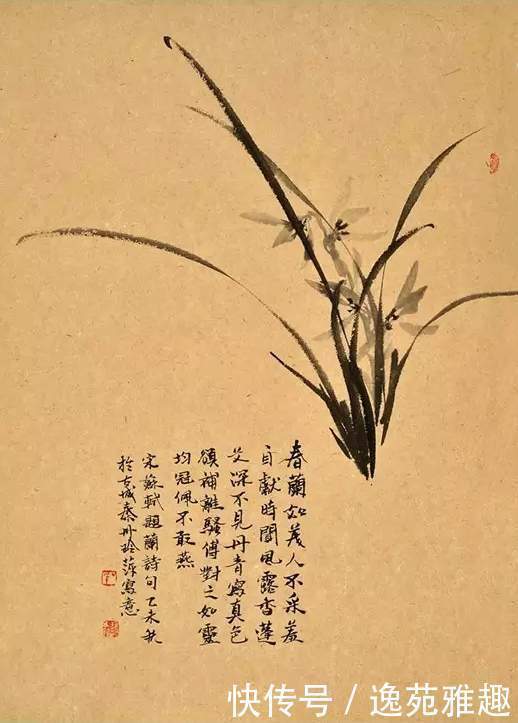 春蘭如美人不采羞
自獻時聞風露香蓬
艾深不見丹青寫真色
欲補離騷傳對之如靈
均冠佩不敢燕
宋蘇軾題蘭詩句乙未秋
於京城秦舟玲萍寫意
快传号 / 逸苑雅趣